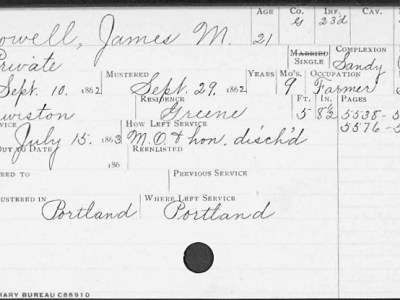 AGE Co. INF. CAV.
owell, James M. 21 G 23d
MARRIED SINGLE COMPLEXION
Private Sandy
MUSTERED YEARS MO'S. OCCUPATION
Sept. 10. 1862 Sept. 29. 1862 9 Farmer
RESIDENCE FT. IN. PAGES
wiston Greene 5 8½ 5538-5
VICE HOW LEFT SERVICE 5576-5
July 15. 1863 M.O. & hon. disch'd
OUT TO DATE REENLISTED
186
RED TO PREVIOUS SERVICE
USTERED IN WHERE LEFT SERVICE
Portland Portland
ARY BUREAU C88910